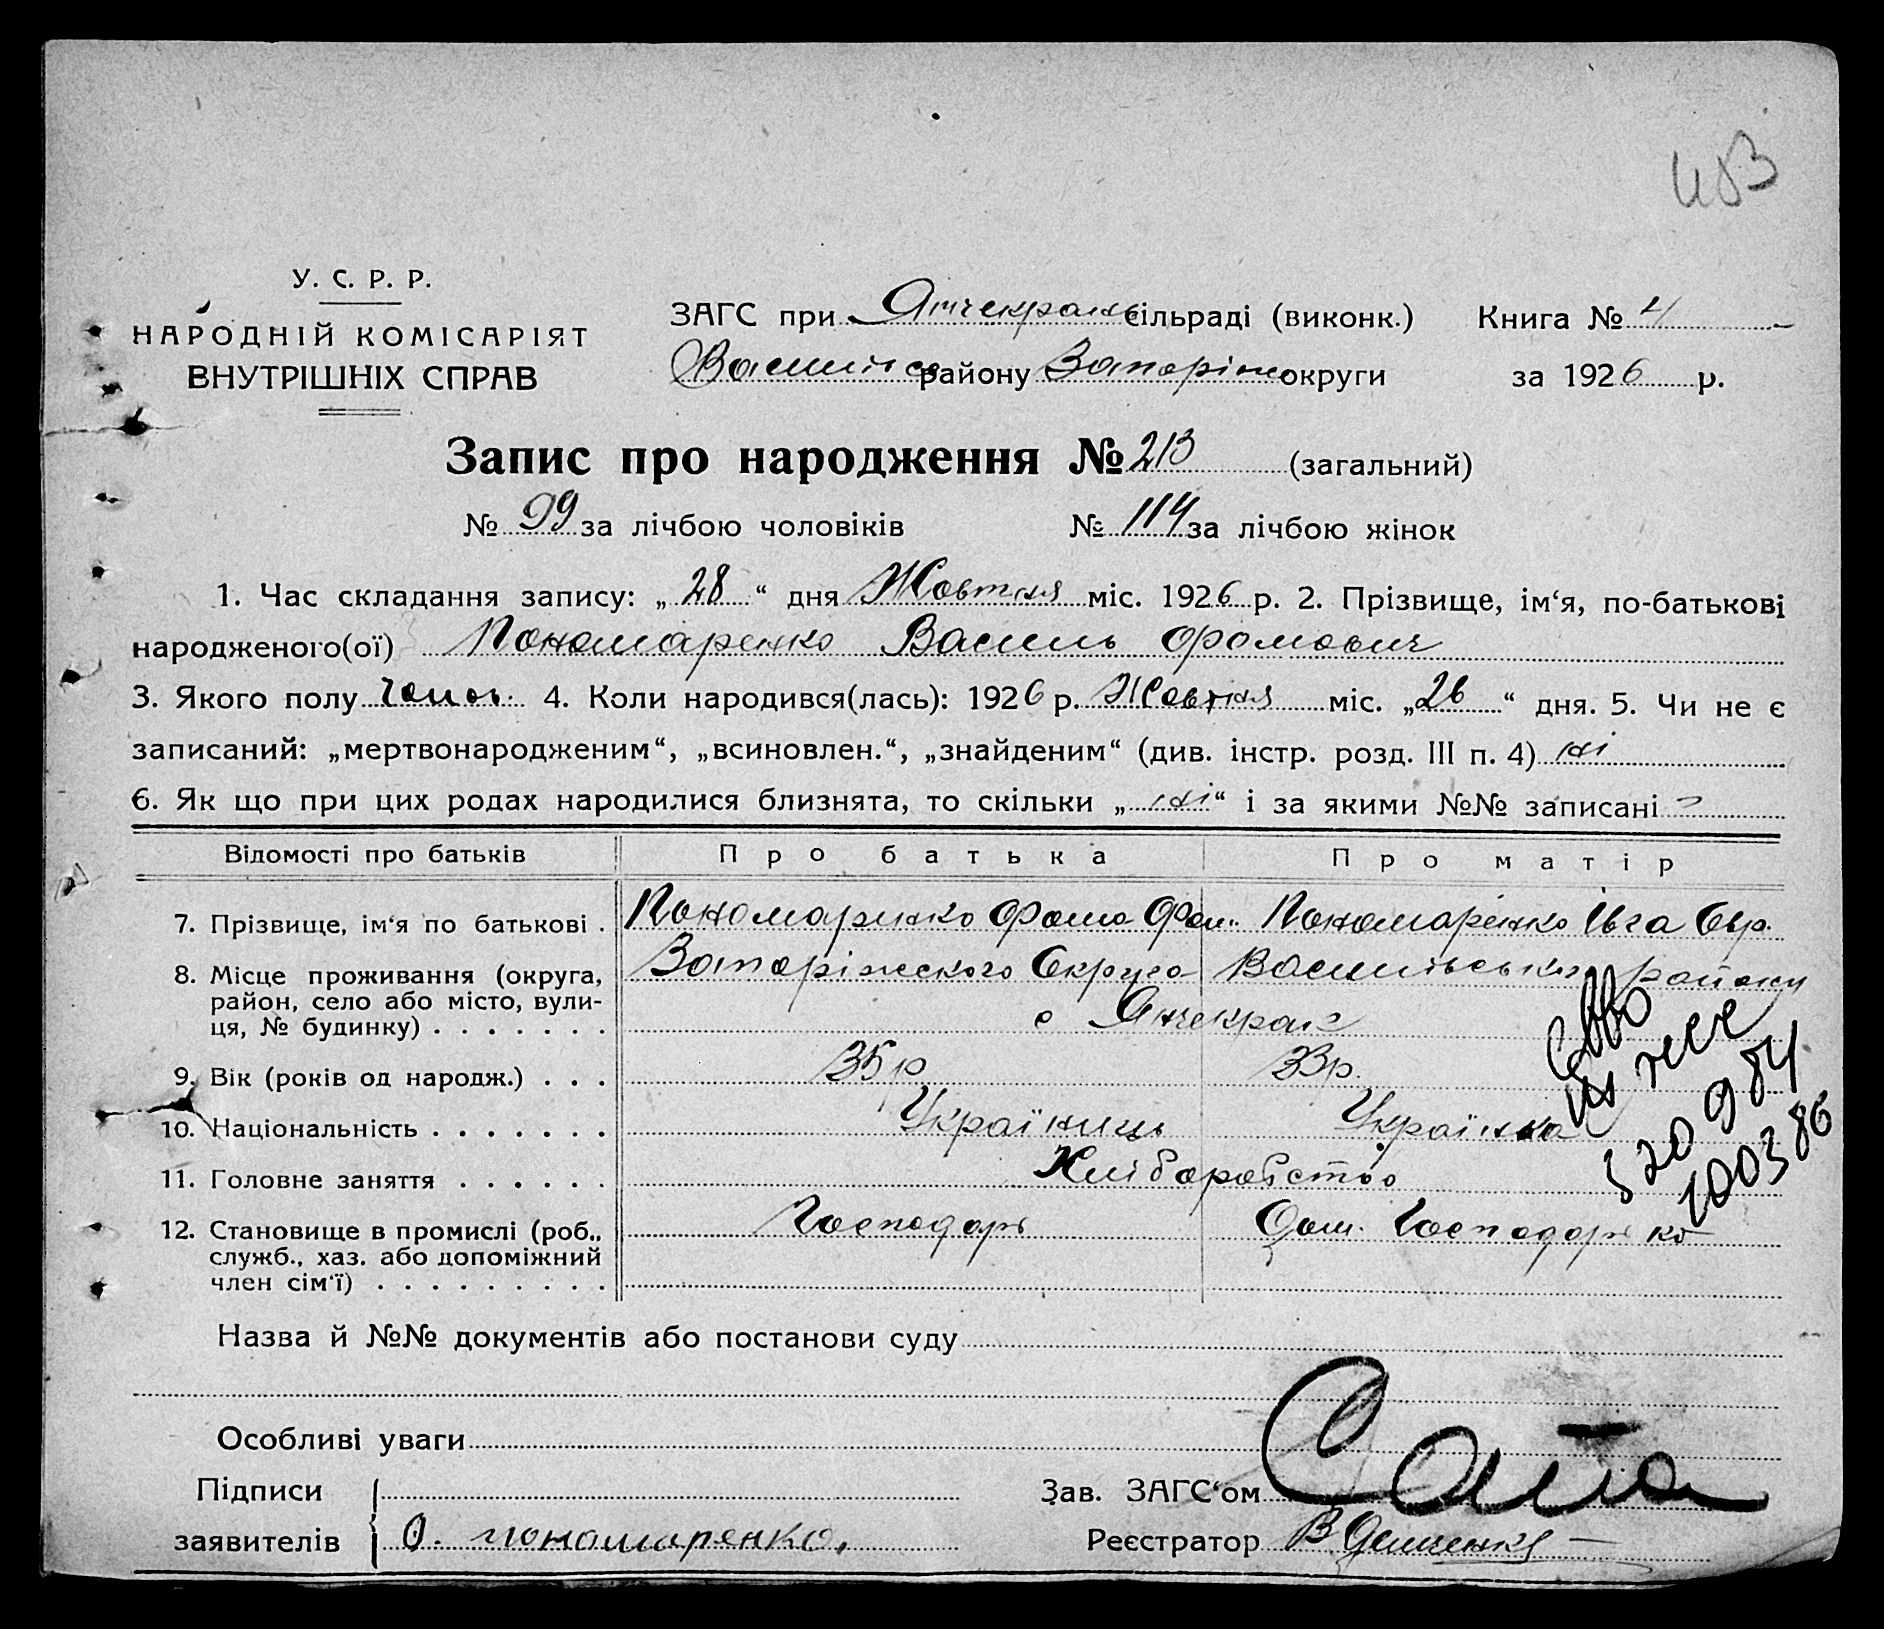 483
У. С. Р. Р.
НАРОДНІЙ КОМІСАРІЯТ
ВНУТРІШНІХ СПРАВ
ЗАГС при Янчекрак сільраді (виконк.) Книга № 4
Василівс району Запоріж округи за 1926 р.
Запис про народження № 213 (загальний)
№ 99 за лічбою чоловіків № 114 за лічбою жінок
1. Час складання запису: „ 28 “ дня Жовтня міс. 1926 р. 2. Прізвище, ім‘я, по-батькові
народженого(ої) Пономаренко Василь Фомович
3. Якого полу чолов. 4. Коли народився(лась): 1926 р. Жовтня міс. „26 “ дня. 5. Чи не є
записаний: „мертвонародженим“, „всиновлен.“, „знайденим“ (див. інстр. розд. III п. 4) ні
6. Як що при цих родах народилися близнята, то скільки „ ні “ і за якими №№ записані –
Відомості про батьків Про батька Про матір
7. Прізвище, ім‘я по батькові . Пономаринко Фома Фом. Пономаренко Івга Овр.
8. Місце проживання (округа, Запоріжского Округа Васильвського району
район, село або місто, вули-
ця, № будинку) . . . . . . . с Янчекрак
9. Вік (років од народж.) . . . 35 р 33р.
10. Національність . . . . . . . Україниць Українка
11. Головне заняття . . . . . . Хліборобство
12. Становище в промислі (роб., Господарь Дом. Господарько
служб., хаз. або допоміжний
член сім‘ї) . . . . . . . . .
320984
100386
Назва й №№ документів або постанови суду
Особливі уваги
Підписи
заявителів О. пономаренко.
Зав. ЗАГС‘ом
Реєстратор В Демченко